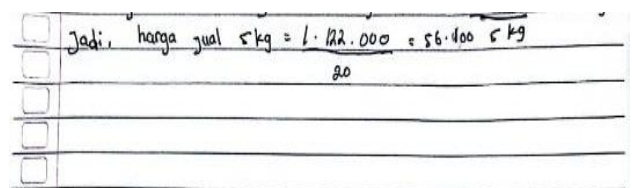 Jadi, harga jual 5 kg = 1.122.000 = 56.100 5 kg
20